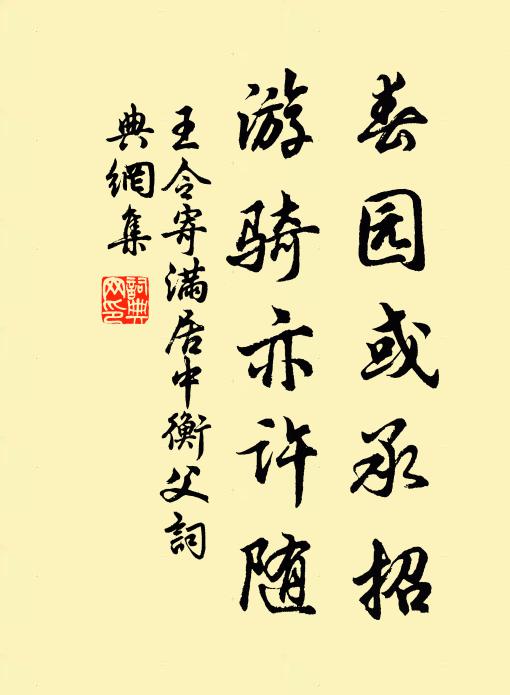 春园或承招
游骑亦许随
王令寄满居中衡父詞
典網集
詞典网印